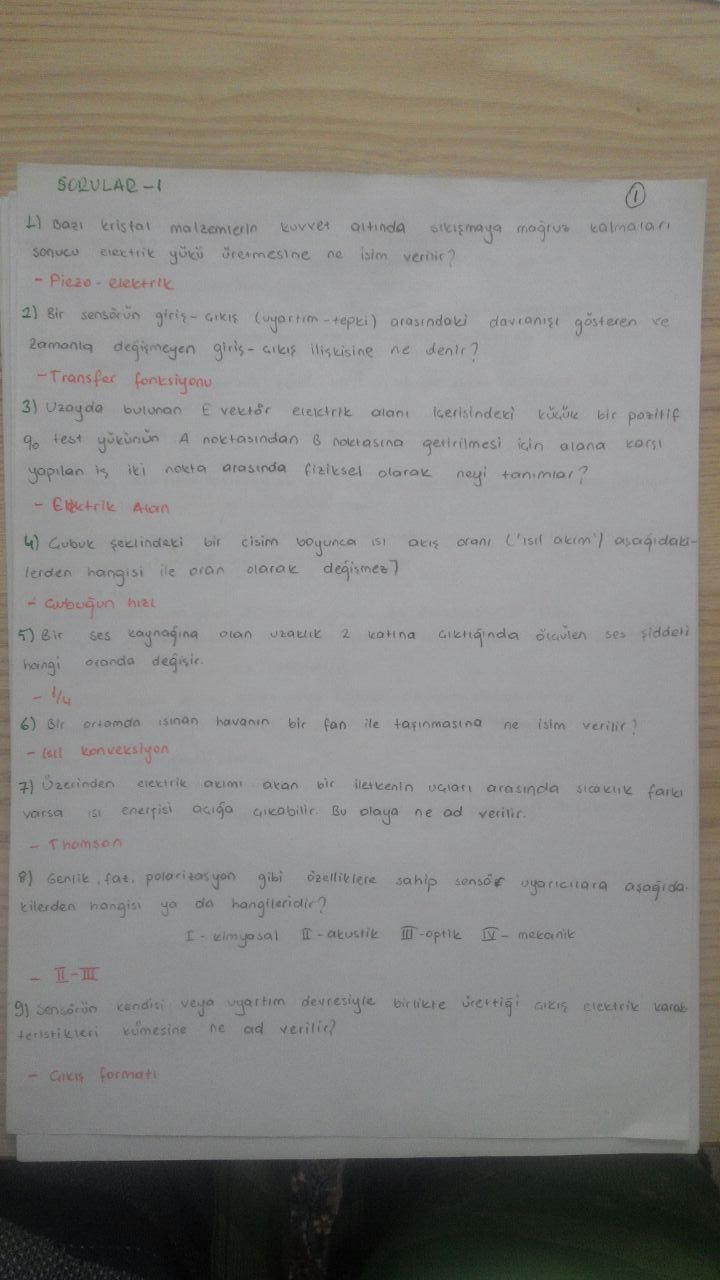 SORULAR-1
1
1) Bazı kristal malzemlerin kuvvet altında sıkışmaya mağruz kalmaları
sonucu elektrik yükü üretmesine ne isim verilir?
- Piezo-elektrik
2) Bir sensörün giriş-çıkış (uyartım-tepki) arasındaki davranışı gösteren ve
zamanla değişmeyen giriş-çıkış ilişkisine ne denir?
-Transfer fonksiyonu
3) Uzayda bulunan E vektör elektrik alanı içerisindeki küçük bir pozitif
q₀ test yükünün A noktasından B noktasına getirilmesi için alana karşı
yapılan iş iki nokta arasında fiziksel olarak neyi tanımlar?
- Elektrik Alan
4) Çubuk şeklindeki bir cisim boyunca ısı akış oranı ('ısıl akım') aşağıdaki-
lerden hangisi ile oran olarak değişmez?
- Çubuğun hızı
5) Bir ses kaynağına olan uzaklık 2 katına çıktığında ölçülen ses şiddeti
hangi oranda değişir.
- 1/4
6) Bir ortamda ısınan havanın bir fan ile taşınmasına ne isim verilir?
- Isıl konveksiyon
7) Üzerinden elektrik akımı akan bir iletkenin uçları arasında sıcaklık farkı
varsa ısı enerjisi açığa çıkabilir. Bu olaya ne ad verilir.
- Thomson
8) Genlik, faz, polarizasyon gibi özelliklere sahip sensör uyarıcılara aşağıda-
kilerden hangisi ya da hangileridir?
I - kimyasal II - akustik III -optik IV - mekanik
- II-III
9) Sensörün kendisi veya uyartım devresiyle birlikte ürettiği çıkış elektrik karak
teristikleri kümesine ne ad verilir?
- Çıkış formatı